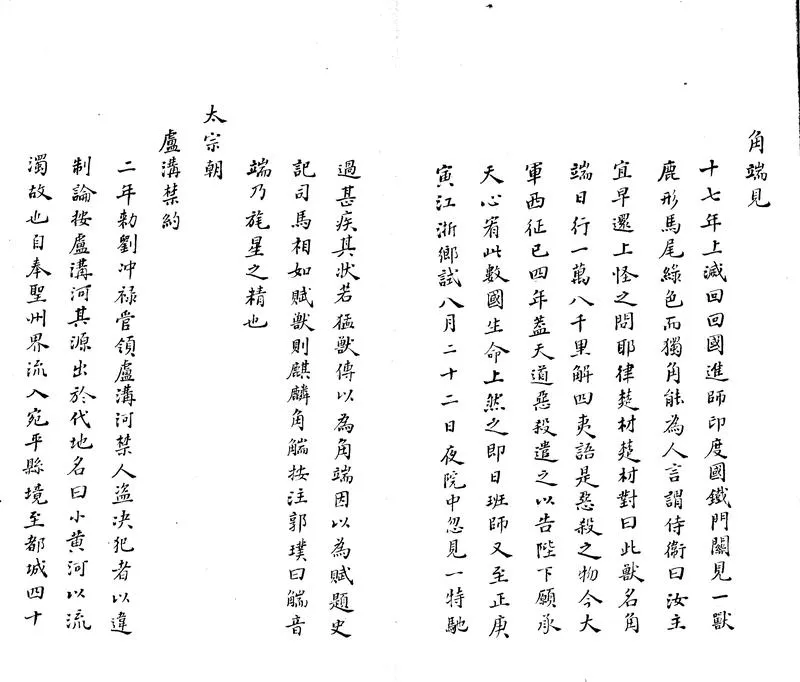 角端見
十七年上滅回回國進師印度國鐵門關見一獸
鹿形馬尾綠色而獨角能為人言謂侍衛曰汝主
宜早還上怪之問耶律楚材楚材對曰此獸名角
端日行一萬八千里解四夷語是惡殺之物今大
軍西征已四年蓋天道惡殺遣之以告陛下願承
天心宥此數國生命上然之即日班師又至正庚
寅江浙鄉試八月二十二日夜院中忽見一特馳
過甚疾其狀若猛獸傳以為角端因以為賦題史
記司馬相如賦獸則麒麟角觿按注郭璞曰觿音
端乃旄星之精也
太宗朝
盧溝禁約
二年勅劉冲祿管領盧溝河禁人盜决犯者以違
制論按盧溝河其源出於代地名曰小黃河以流
濁故也自奉聖州界流入宛平縣境至都城四十